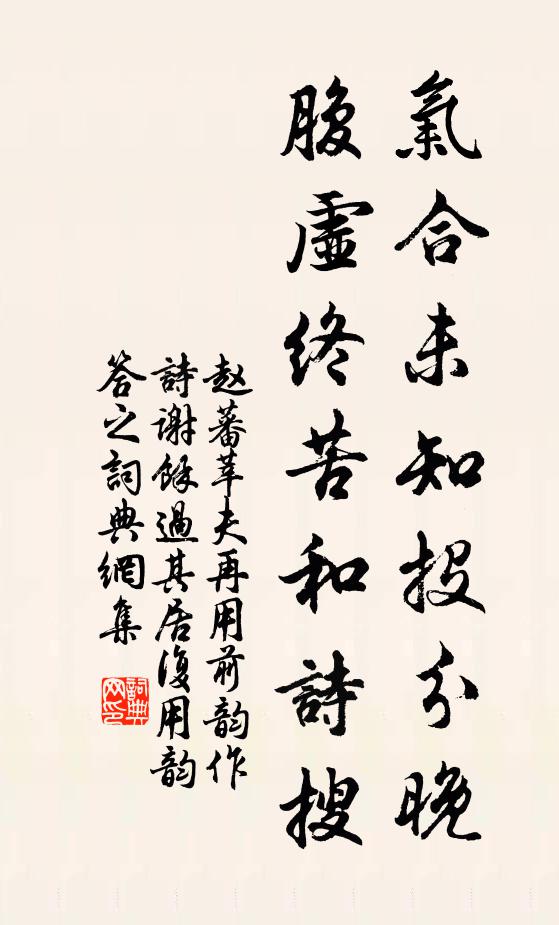 氣合未知投分晚
腹虛終苦和詩搜
赵蕃莘夫再用前韵作
詩謝馀過其居復用韵
答之詞典網集
詞典网印